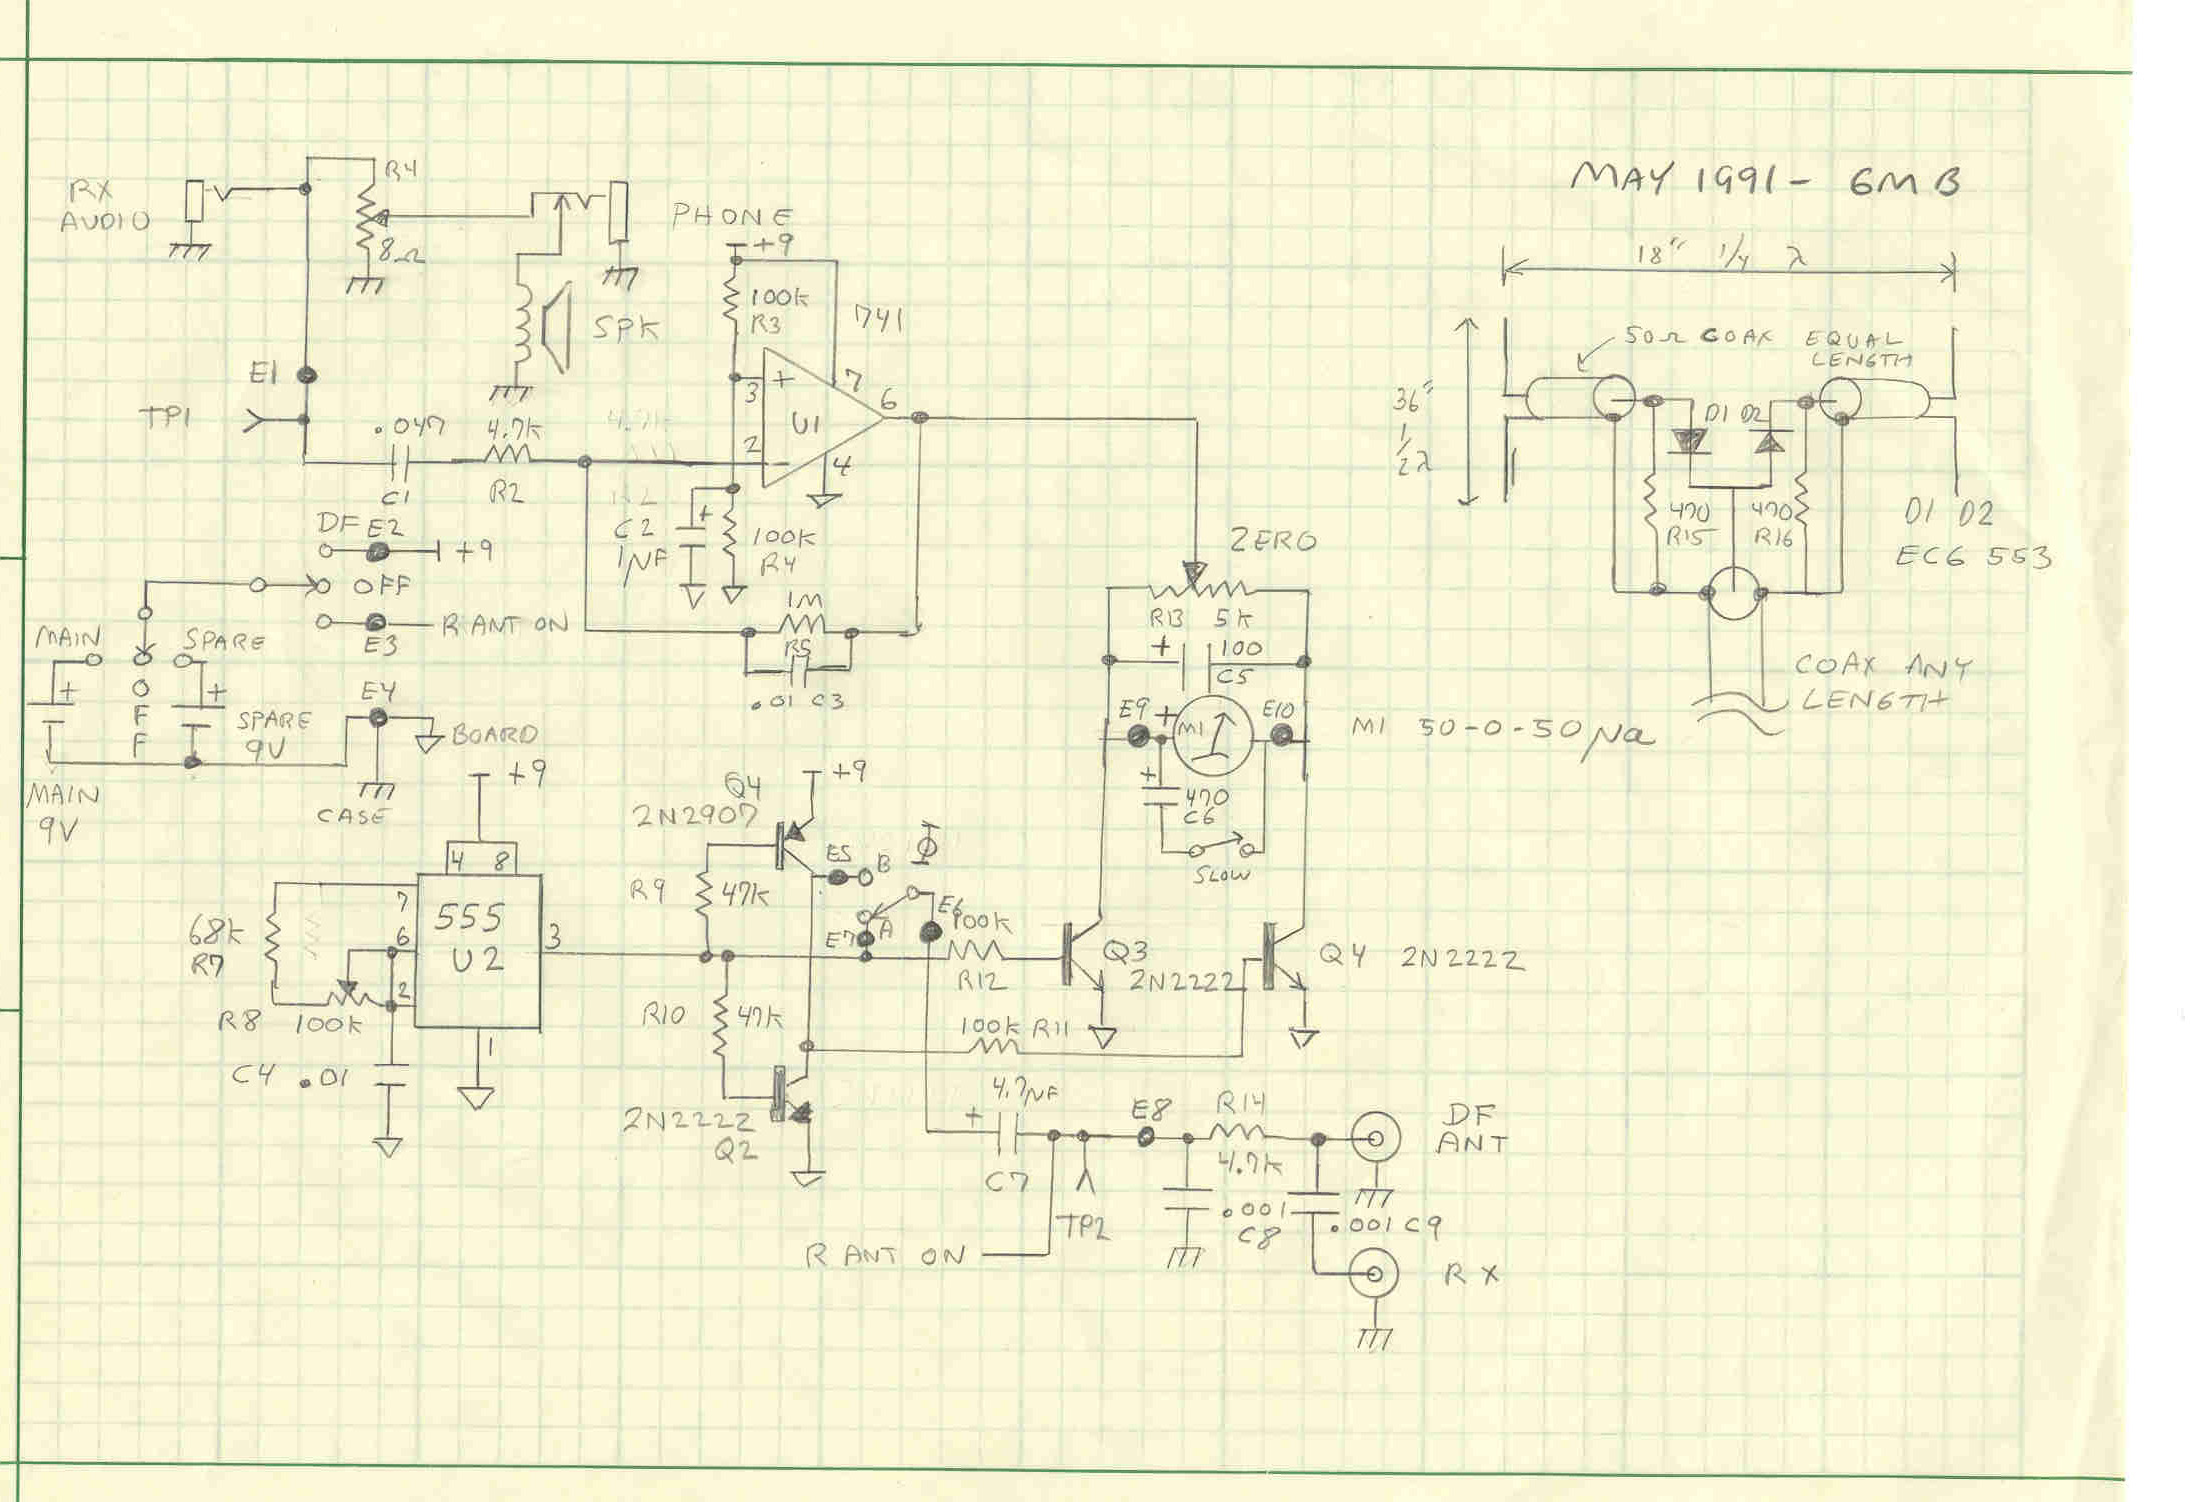 MAY 1991 - GMB
RX
AUDIO
R4
8Ω
PHONE
+9
SPK
100K
R3
741
E1
TP1
.047
C1
4.7K
R2
3
+
7
6
U1
2
-
4
C2
+
1µF
100K
R4
1M
R5
.01 C3
DF E2
+9
OFF
R ANT ON
E3
MAIN
+
OFF
SPARE
+
SPARE
9V
E4
BOARD
CASE
MAIN
9V
ZERO
R13 5K
+ 100
C5
E9 + M1 E10
M1 50-0-50µa
+ 470
C6
SLOW
18" 1/4 λ
36"
1/2λ
50Ω COAX EQUAL
LENGTH
D1 D2
470
R15
470
R16
D1 D2
ECG 553
COAX ANY
LENGTH
+9
4 8
7
555
U2
6
2
3
1
68K
R7
R8 100K
C4 .01
Q4
2N2907
+9
R9 47K
E5 B
Φ
E7 A
E6
100K
R12
Q3
2N2222
Q4 2N2222
R10 47K
100K R11
2N2222
Q2
+ 4.7µF
C7
TP2
R ANT ON
E8
R14
4.7K
.001
C8
.001 C9
DF
ANT
RX